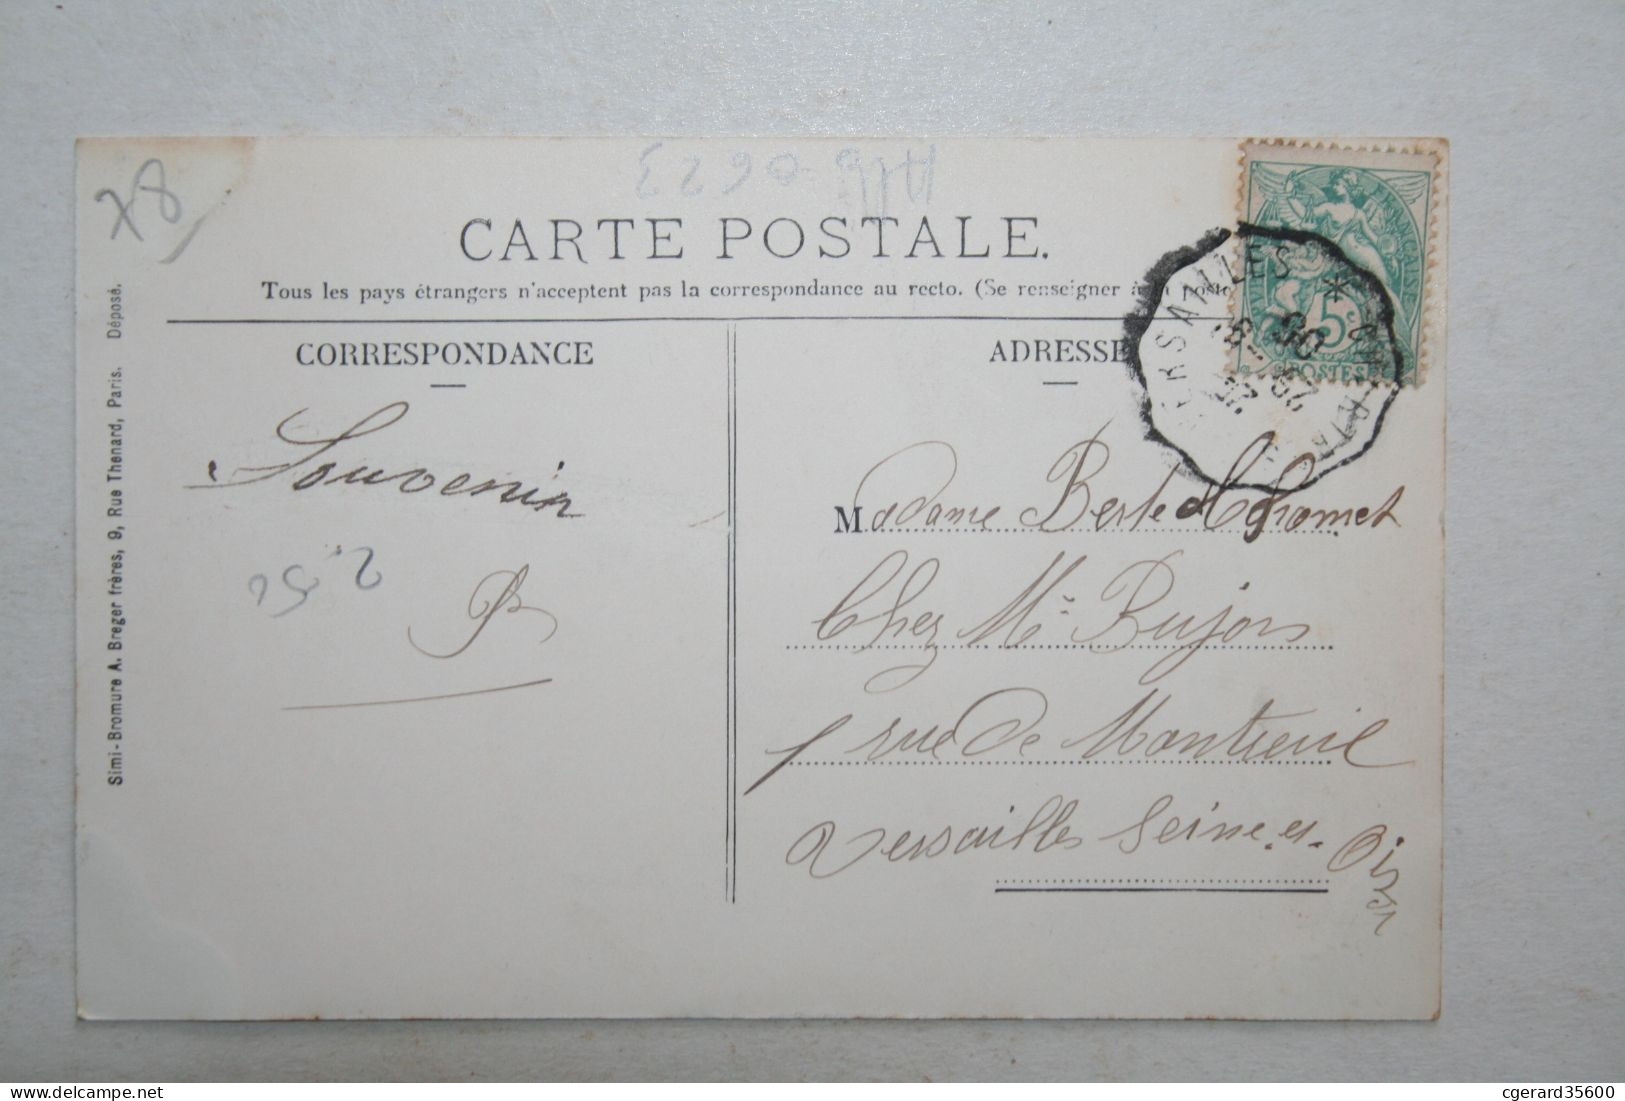 78
CARTE POSTALE.
Tous les pays étrangers n'acceptent pas la correspondance au recto. (Se renseigner à la Poste
CORRESPONDANCE
Souvenir
2.50
ADRESSE
Madame Berte
Chez Me Bujon
1 rue de Montreuil
Versailles Seine-et-Oise
VERSAILLES *
FRANÇAISE
5c
POSTES
Simi-Bromure A. Breger frères, 9, Rue Thenard, Paris. Déposé.
cgerard35600